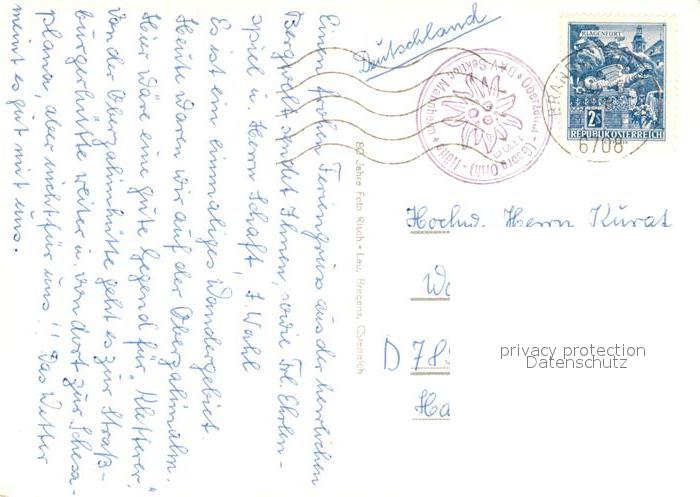 Einen frohen Feriengruss aus der herrlichen
Bergwelt sendet Ihnen, sowie Frl. Ehren-
spiel u. Herrn Schaft, A. Wahl
Es ist ein einmaliges Wandergebiet.
Heute waren wir auf der Oberzalimalm.
Hier wäre eine gute Gegend für "Kletterer."
Von der Oberzalimhütte geht es zur Straß-
burgerhütte weiter u. von dort zur Schesa-
plana, aber nicht für uns!! Das Wetter
meint es gut mit uns.
80 Jahre Foto Risch-Lau, Bregenz, Österreich
Deutschland
DAV Sektion Mannheim
Oberzalim - (Georg Orth) - Hütte
BRAN
6708
KLAGENFURT
2S
REPUBLIK ÖSTERREICH
Hochw. Herrn Kurat
D 78
Ha
privacy protection
Datenschutz